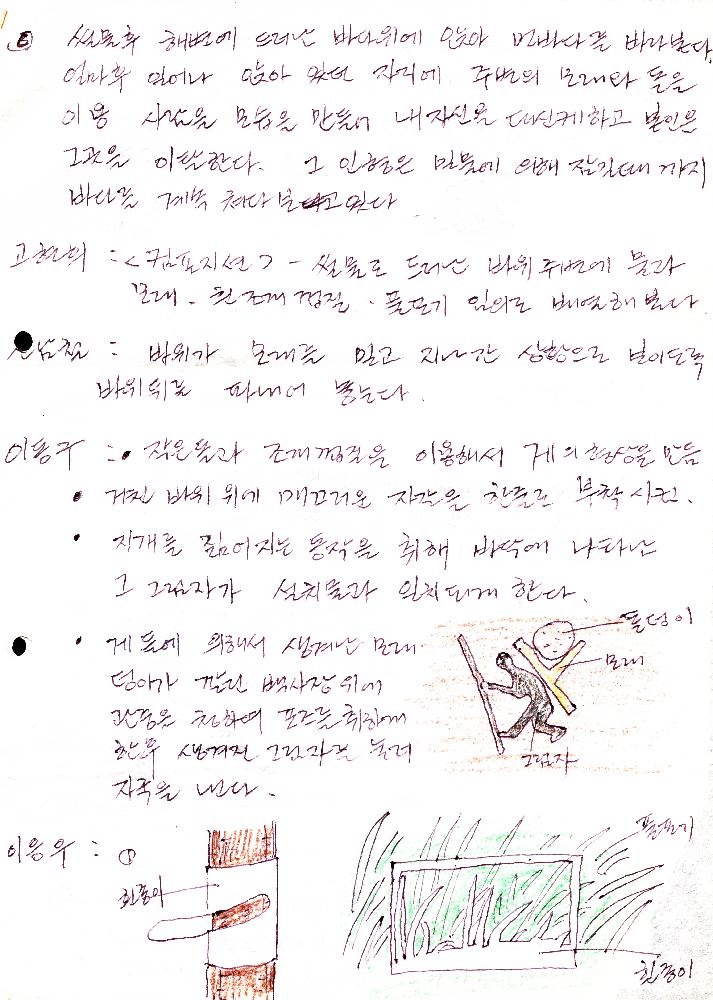 ⑥ 썰물후 해변에 드러난 바다위에 앉아 먼바다를 바라본다.
얼마후 일어나 앉아 있던 자리에 주변의 모래와 돌을
이용 사람을 모습을 만들어 내자신을 대신케하고 본인은
그곳을 이탈한다. 그 인형은 밀물에 의해 잠길때 까지
바다를 계속 쳐다 보고있다
고현희 : <컴포지션> - 썰물로 드러난 바위주변에 물과
모래. 흰조개 껍질. 풀포기 임의로 배열해 본다
: 바위가 모래를 밀고 지나간 상황으로 보이도록
바위뒤로 파내어 놓는다.
이용주 : • 작은돌과 조개껍질을 이용해서 게의 형상을 만듬
• 거친 바위 위에 매끄러운 자갈을 한돌로 부착 시킨.
• 지게를 짊어지는 동작을 취해 바닥에 나타난
그 그림자가 설치물과 일치되게 한다.
• 게 들에 의해서 생겨난 모래
덩어가 깔린 백사장 위에
관중은 청하여 포즈를 취하게
한후 생겨진 그림자를 눌러
자국을 낸다.
돌덩이
모래
그림자
이응우 : ①
흰종이
풀포기
흰종이